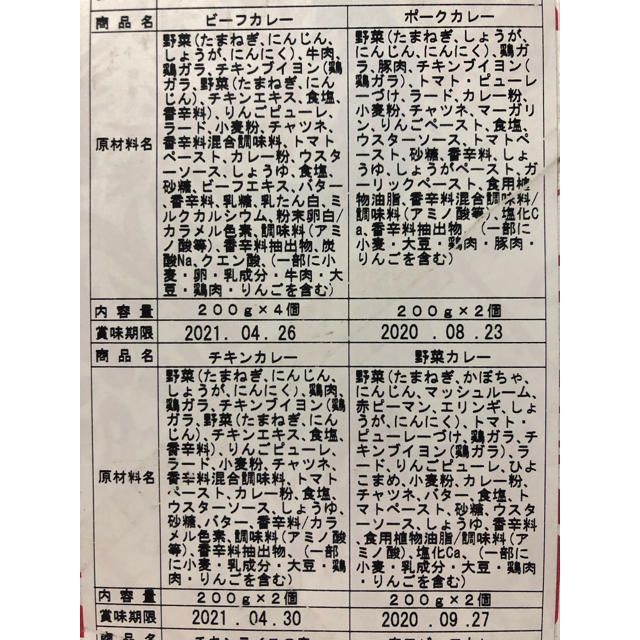 商品名 ビーフカレー ポークカレー
原材料名
野菜(たまねぎ、にんじん、
しょうが、にんにく)、牛肉、
鶏ガラ、チキンブイヨン(鶏
ガラ、野菜(たまねぎ、にん
じん)、チキンエキス、食塩、
香辛料)、りんごピューレ、
ラード、小麦粉、チャツネ、
香辛料混合調味料、トマト
ペースト、カレー粉、ウスタ
ーソース、しょうゆ、食塩、
砂糖、ビーフエキス、バター
、香辛料、乳糖、乳たん白、ミ
ルクカルシウム、粉末卵白/
カラメル色素、調味料(アミ
ノ酸等)、香辛料抽出物、炭
酸Na、クエン酸、(一部に小
麦・卵・乳成分・牛肉・大
豆・鶏肉・りんごを含む)
野菜(たまねぎ、しょうが、
にんじん、にんにく)、鶏ガ
ラ、豚肉、チキンブイヨン(
鶏ガラ)、トマト・ピューレ
ーづけ、ラード、カレー粉、
小麦粉、チャツネ、マーガリ
ン、りんごペースト、食塩、
ウスターソース、トマトペー
スト、砂糖、香辛料、しょ
うゆ、しょうがペースト、ガ
ーリックペースト、食用植
物油脂、香辛料混合調味料/
調味料(アミノ酸等)、塩化C
a、香辛料抽出物、(一部に
小麦・大豆・鶏肉・豚肉・
りんごを含む)
内容量 200g×4個 200g×2個
賞味期限 2021.04.26 2020.08.23
商品名 チキンカレー 野菜カレー
原材料名
野菜(たまねぎ、にんじん、
しょうが、にんにく)、鶏肉、
鶏ガラ、チキンブイヨン(鶏
ガラ、野菜(たまねぎ、にん
じん)、チキンエキス、食塩、
香辛料)、りんごピューレ、
ラード、小麦粉、チャツネ、
香辛料混合調味料、トマト
ペースト、カレー粉、食塩、
ウスターソース、しょうゆ、
砂糖、バター、香辛料/カラ
メル色素、調味料(アミノ酸
等)、香辛料抽出物、(一部
に小麦・乳成分・大豆・鶏
肉・りんごを含む)
野菜(たまねぎ、かぼちゃ、
にんじん、マッシュルーム、
赤ピーマン、エリンギ、しょ
うが、にんにく)、トマト・
ピューレーづけ、鶏ガラ、チ
キンブイヨン(鶏ガラ)、ラ
ード、りんごピューレ、ひよ
こまめ、小麦粉、カレー粉、
チャツネ、バター、食塩、ト
マトペースト、砂糖、ウスタ
ーソース、しょうゆ、香辛料
、食用植物油脂/調味料(ア
ミノ酸)、塩化Ca、(一部に
小麦・乳成分・大豆・鶏肉
・りんごを含む)
内容量 200g×2個 200g×2個
賞味期限 2021.04.30 2020.09.27